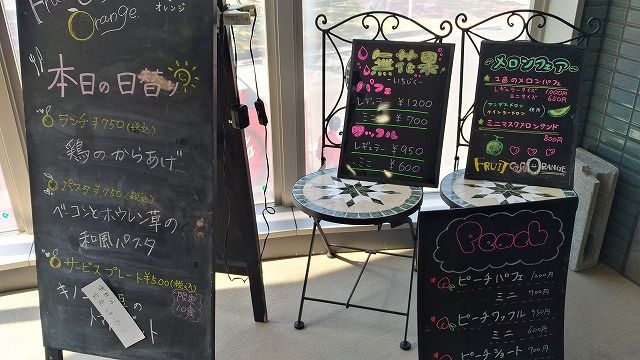 Orange.
オレンジ
本日の日替り
ランチ ¥750(税込)
鶏のからあげ
パスタ ¥750(税込)
ベーコンとホウレン草の
和風パスタ
サービスプレート ¥500(税込)
限定
10食
キノコ
の
無花果
～いちじく～
パフェ
レギュラー ¥1200
ミニ ¥700
ワッフル
レギュラー ¥950
ミニ ¥600
メロンフェアー
★2色のメロンパフェ
レギュラーサイズ 1000円
ミニサイズ 650円
アンデスメロン
クインシーメロン
使用
★ミニマスクメロンサンド
800円
FRUIT CAFE ORANGE
Peach
ピーチパフェ 1200円
ミニ 700円
ピーチワッフル 950円
ミニ 600円
ピーチショート 700円